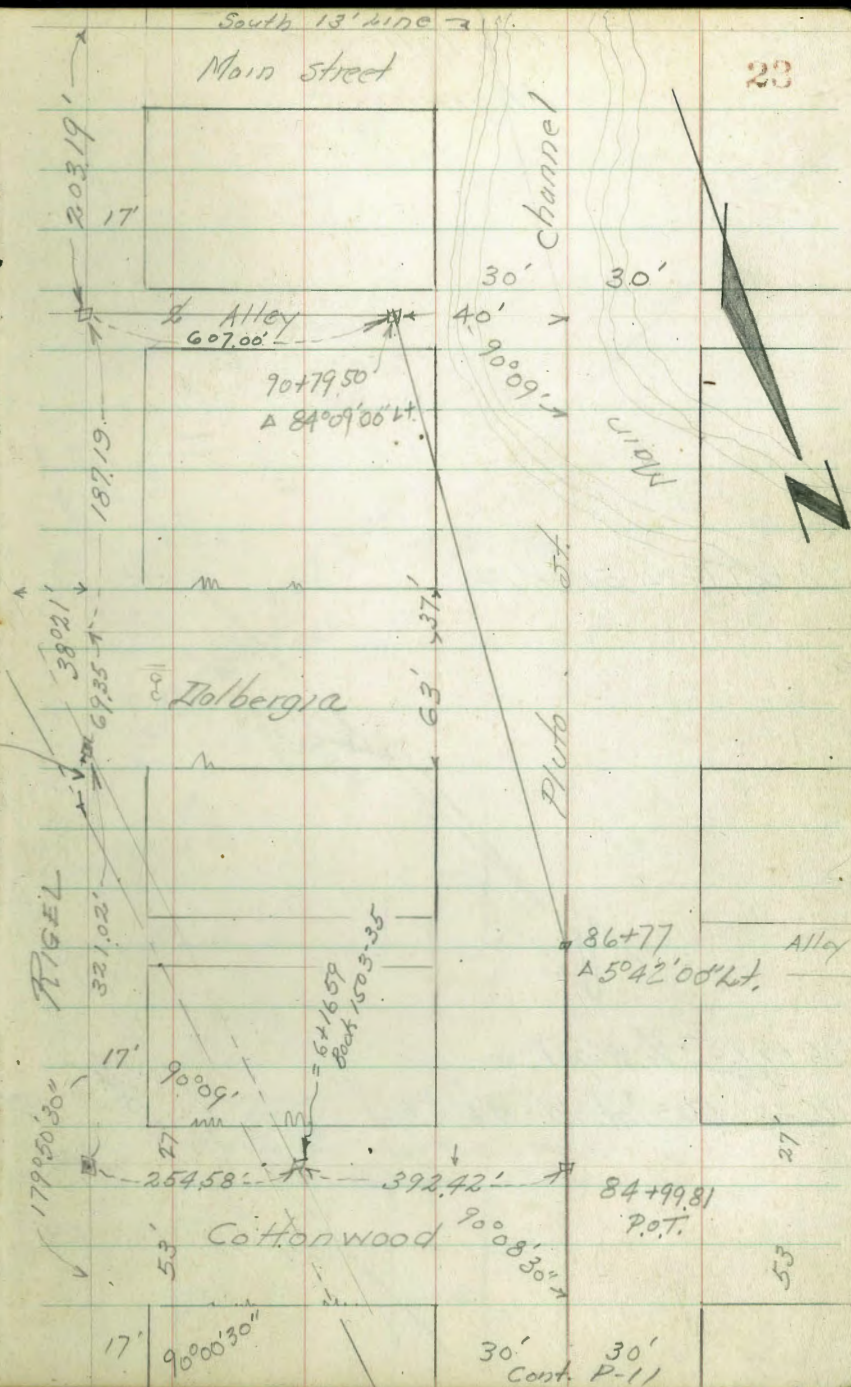 South 13' Line
Main Street
23
203.19'
17'
Channel
30'
30'
Alley
40'
607.00'
90°09'
90+79.50
Δ 84°09'00" Lt.
Main
187.19
N
St.
38°21'
37'
69.35
Dalbergia
63'
Pluto
RIGEL
321.02'
86+77
Δ 5°42'00" Lt.
Alley
= 6+16.59
Book 1503-35
17'
90°09'
179°50'30"
27'
27'
254.58'
392.42'
84+99.81
P.O.T.
Cottonwood
90°08'30"
53'
53'
17'
90°00'30"
30'
30'
Cont. P-11